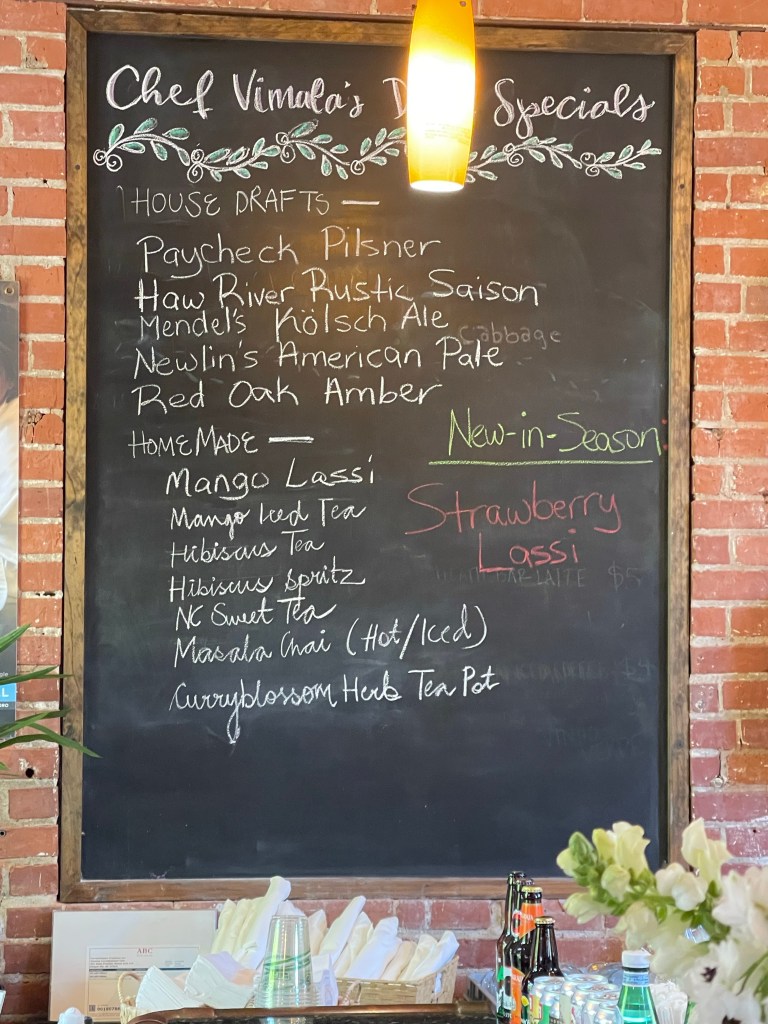 Chef Vimala's Specials
HOUSE DRAFTS —
Paycheck Pilsner
Haw River Rustic Saison
Mendel's Kölsch Ale
Cabbage
Newlin's American Pale
Red Oak Amber
HOMEMADE —
New-in-Season:
Mango Lassi
Strawberry
Lassi
Mango Iced Tea
Hibiscus Tea
Hibiscus Spritz
$5
NC Sweet Tea
Masala Chai (Hot/Iced)
Curryblossom Herb Tea Pot
ABC